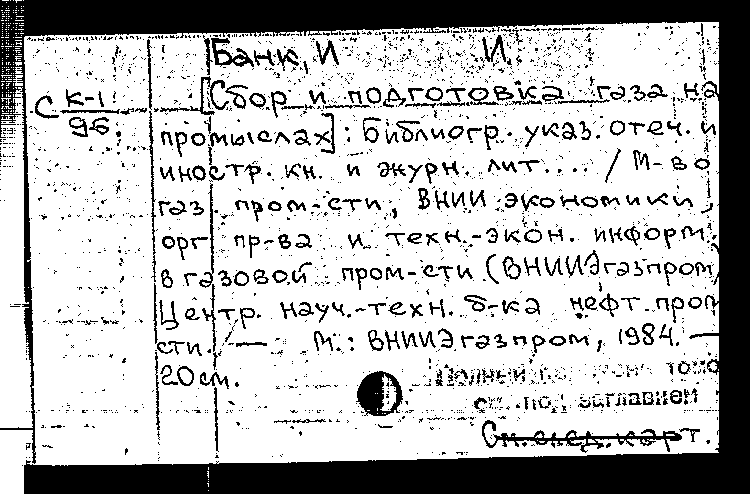 Банк, И И
[Сбор и подготовка газа на
С К-1
96.
промыслах] : Библиогр. указ. отеч. и
иностр. кн. и журн. лит.... / М-во
газ. пром-сти, ВНИИ экономики,
орг пр-ва и техн.-экон. информ.
в газовой пром-сти (ВНИИЭгазпром)
Центр. науч.-техн. б-ка нефт. пром
сти. — М.: ВНИИЭгазпром, 1984. —
20 см.
Полный томо
см. под заглавием
См. след. карт.